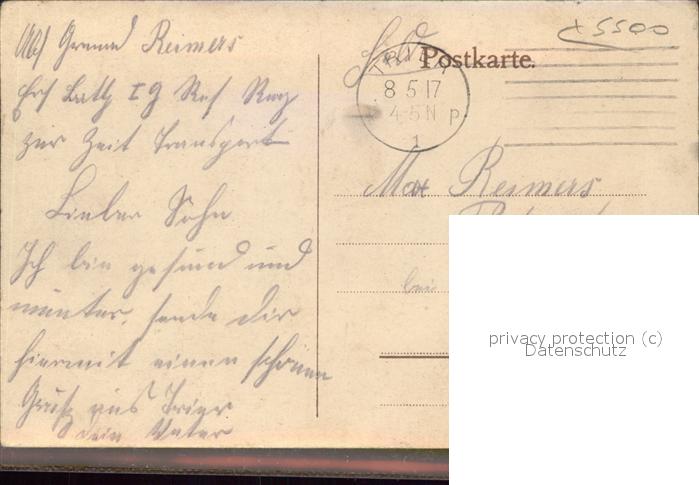 Abs Grenad Reimers
Ers Batl I G Res Reg
zur Zeit Transport
Lieber Sohn
Ich bin gesund und
munter, sende dir
hiermit einen schönen
Gruß aus Trier
dein Vater
+5500
Postkarte.
TRIER
8 5 17
4-5N p.
1
Max Reimers
bei
privacy protection (c)
Datenschutz